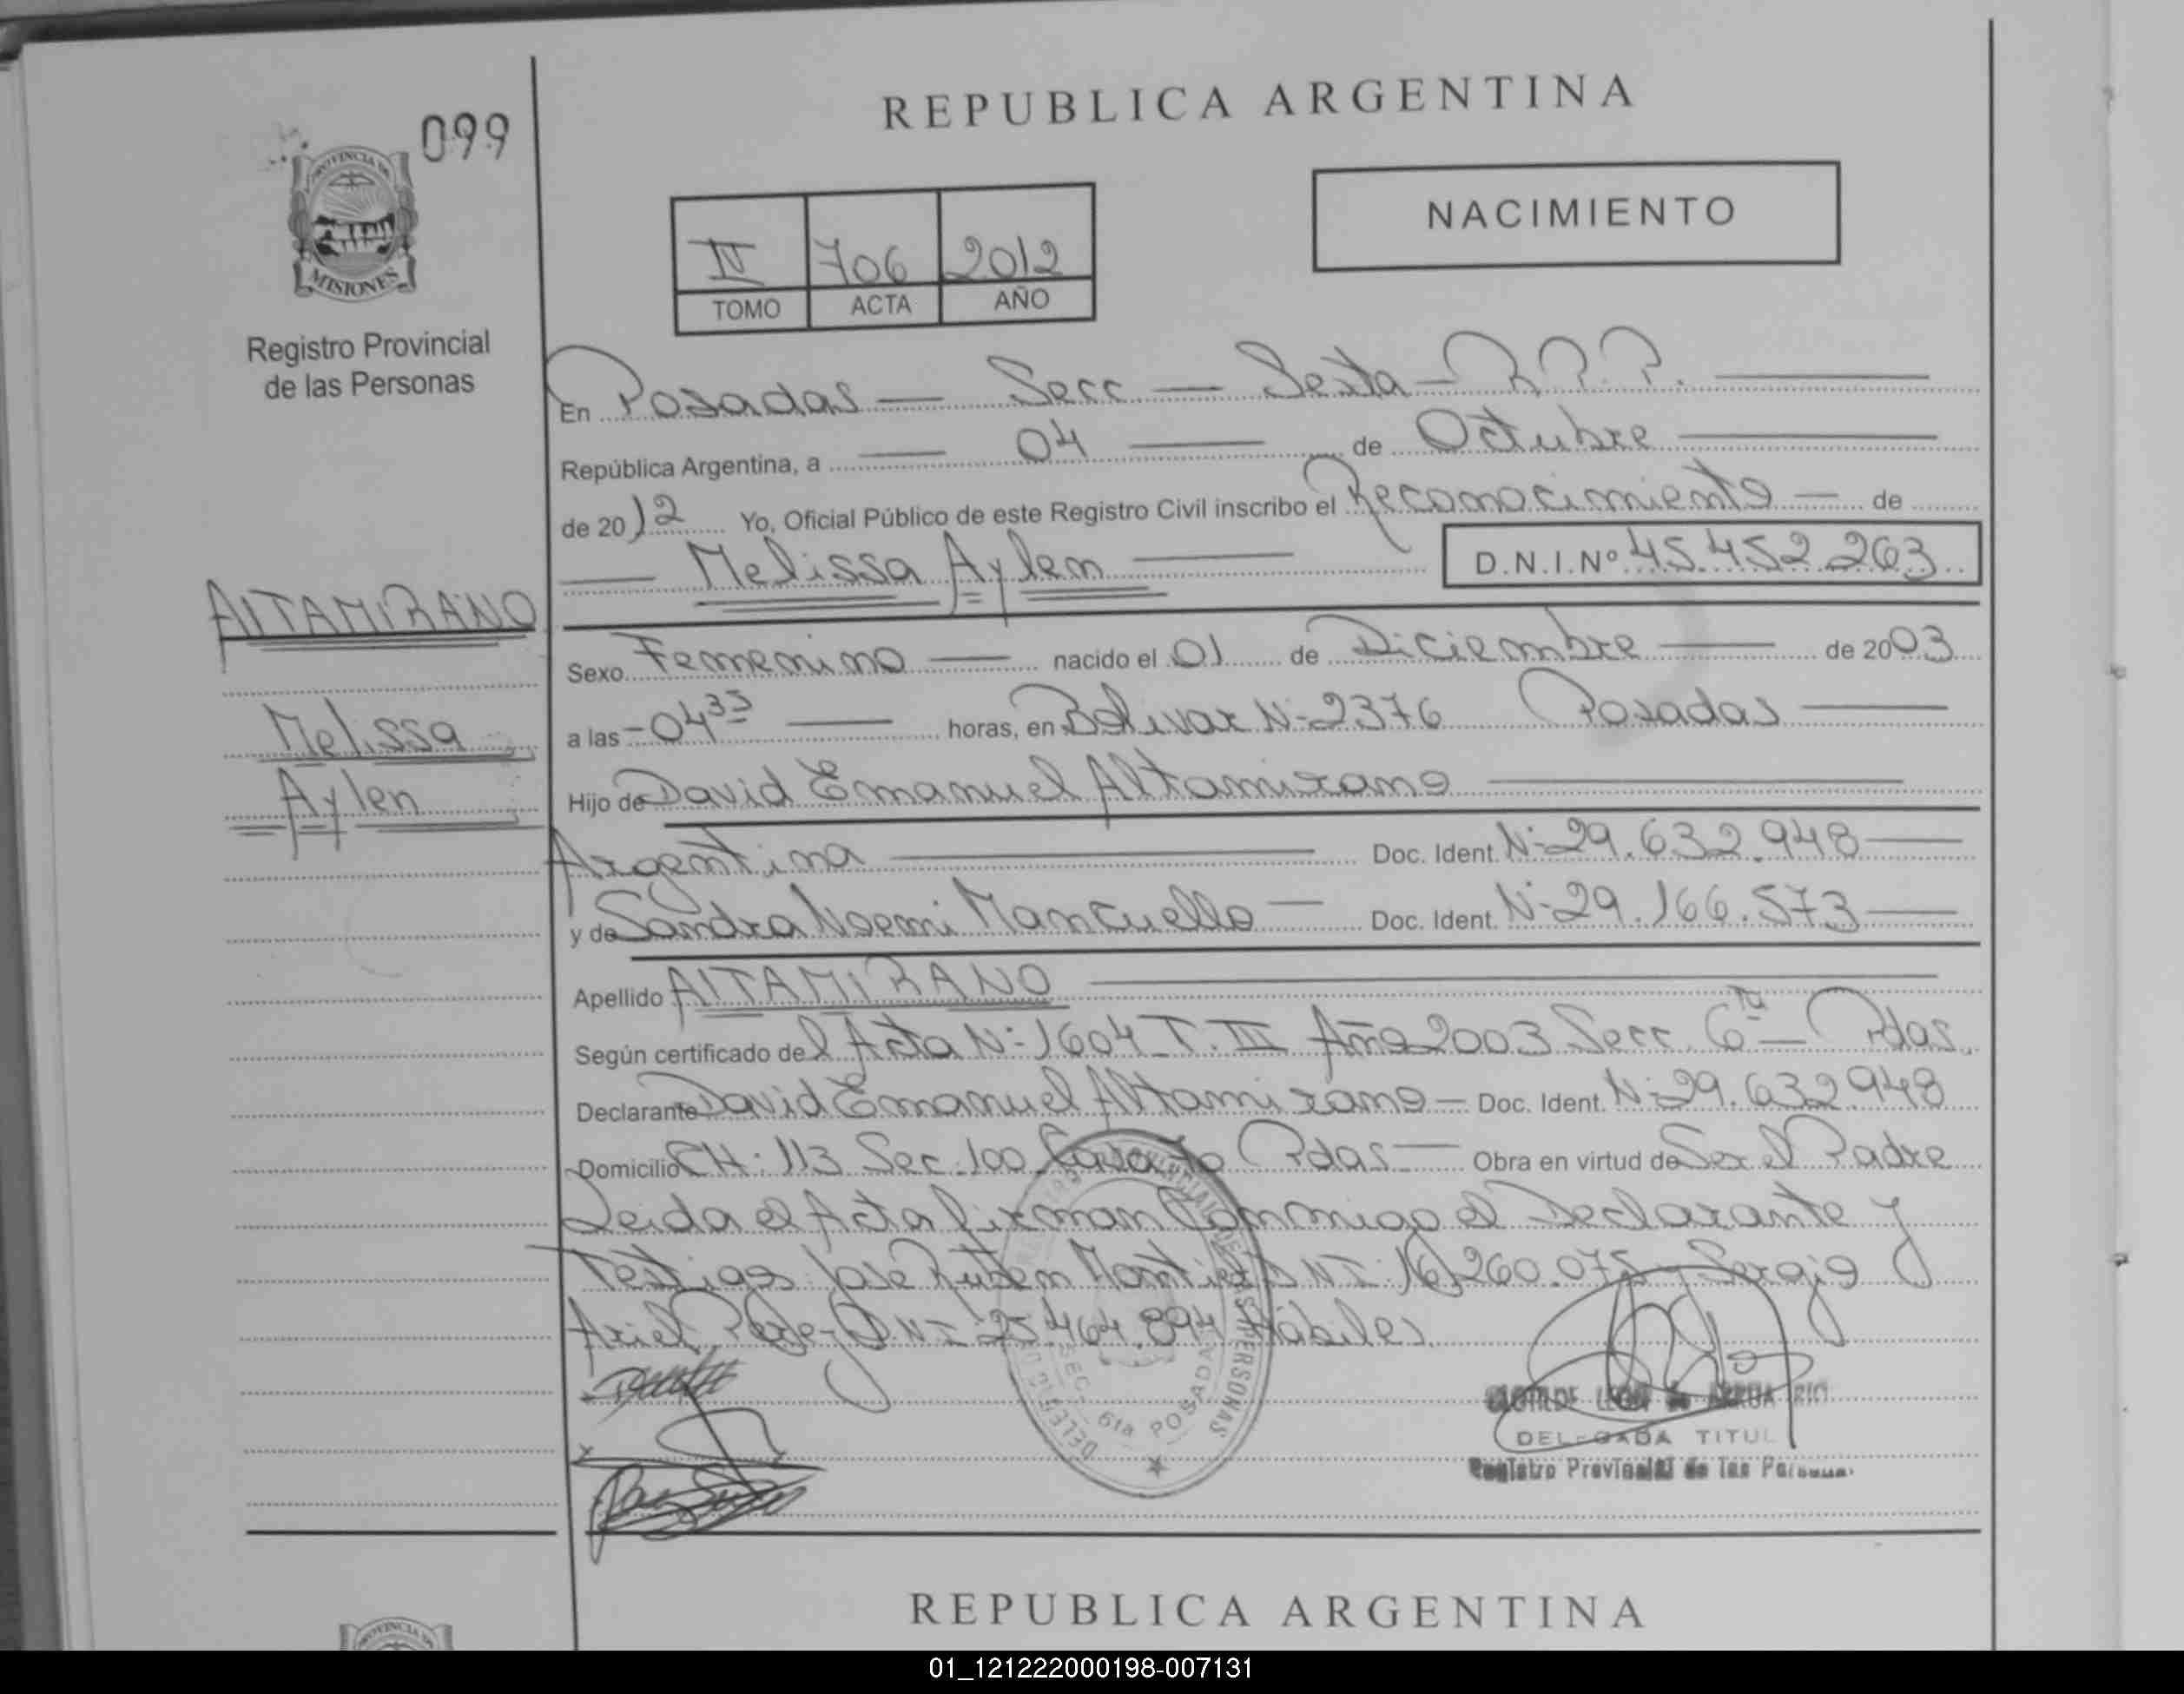 REPUBLICA ARGENTINA
099
PROVINCIA DE
MISIONES
Registro Provincial
de las Personas
NACIMIENTO
IV 706 2012
TOMO ACTA AÑO
En Posadas — Secc — Sexta — R.P.P.
República Argentina, a — 04 — de Octubre
de 2012 Yo, Oficial Público de este Registro Civil inscribo el Reconocimiento — de
— Melissa Aylen — D.N.I.Nº 45.452.263
ALTAMIRANO
Melissa
Aylen
Sexo Femenino — nacido el 01 de Diciembre — de 2003
a las - 04 35 — horas, en Bolivar Nº 2376 Posadas
Hijo de David Emanuel Altamirano
Argentina — Doc. Ident. Nº 29.632.948
y de Sandra Noemi Mancuello — Doc. Ident. Nº 29.166.573
Apellido ALTAMIRANO
Según certificado del Acta Nº 1604 T. III Año 2003 Secc. 6ta — Pdas.
Declarante David Emanuel Altamirano — Doc. Ident. Nº 29.632.948
Domicilio CH: 113 Sec. 100 Pdas — Obra en virtud de Ser el Padre
Leida el Acta firman Conmigo el Declarante y
Testigos José Ruben DNI: 16.260.075 Sergio
Ariel DNI 25.464.894 Hábiles
SEC. 6ta POSADA
DE LAS PERSONAS
DELEGADA TITUL
Registro Provincial de las
REPUBLICA ARGENTINA
01_121222000198-007131